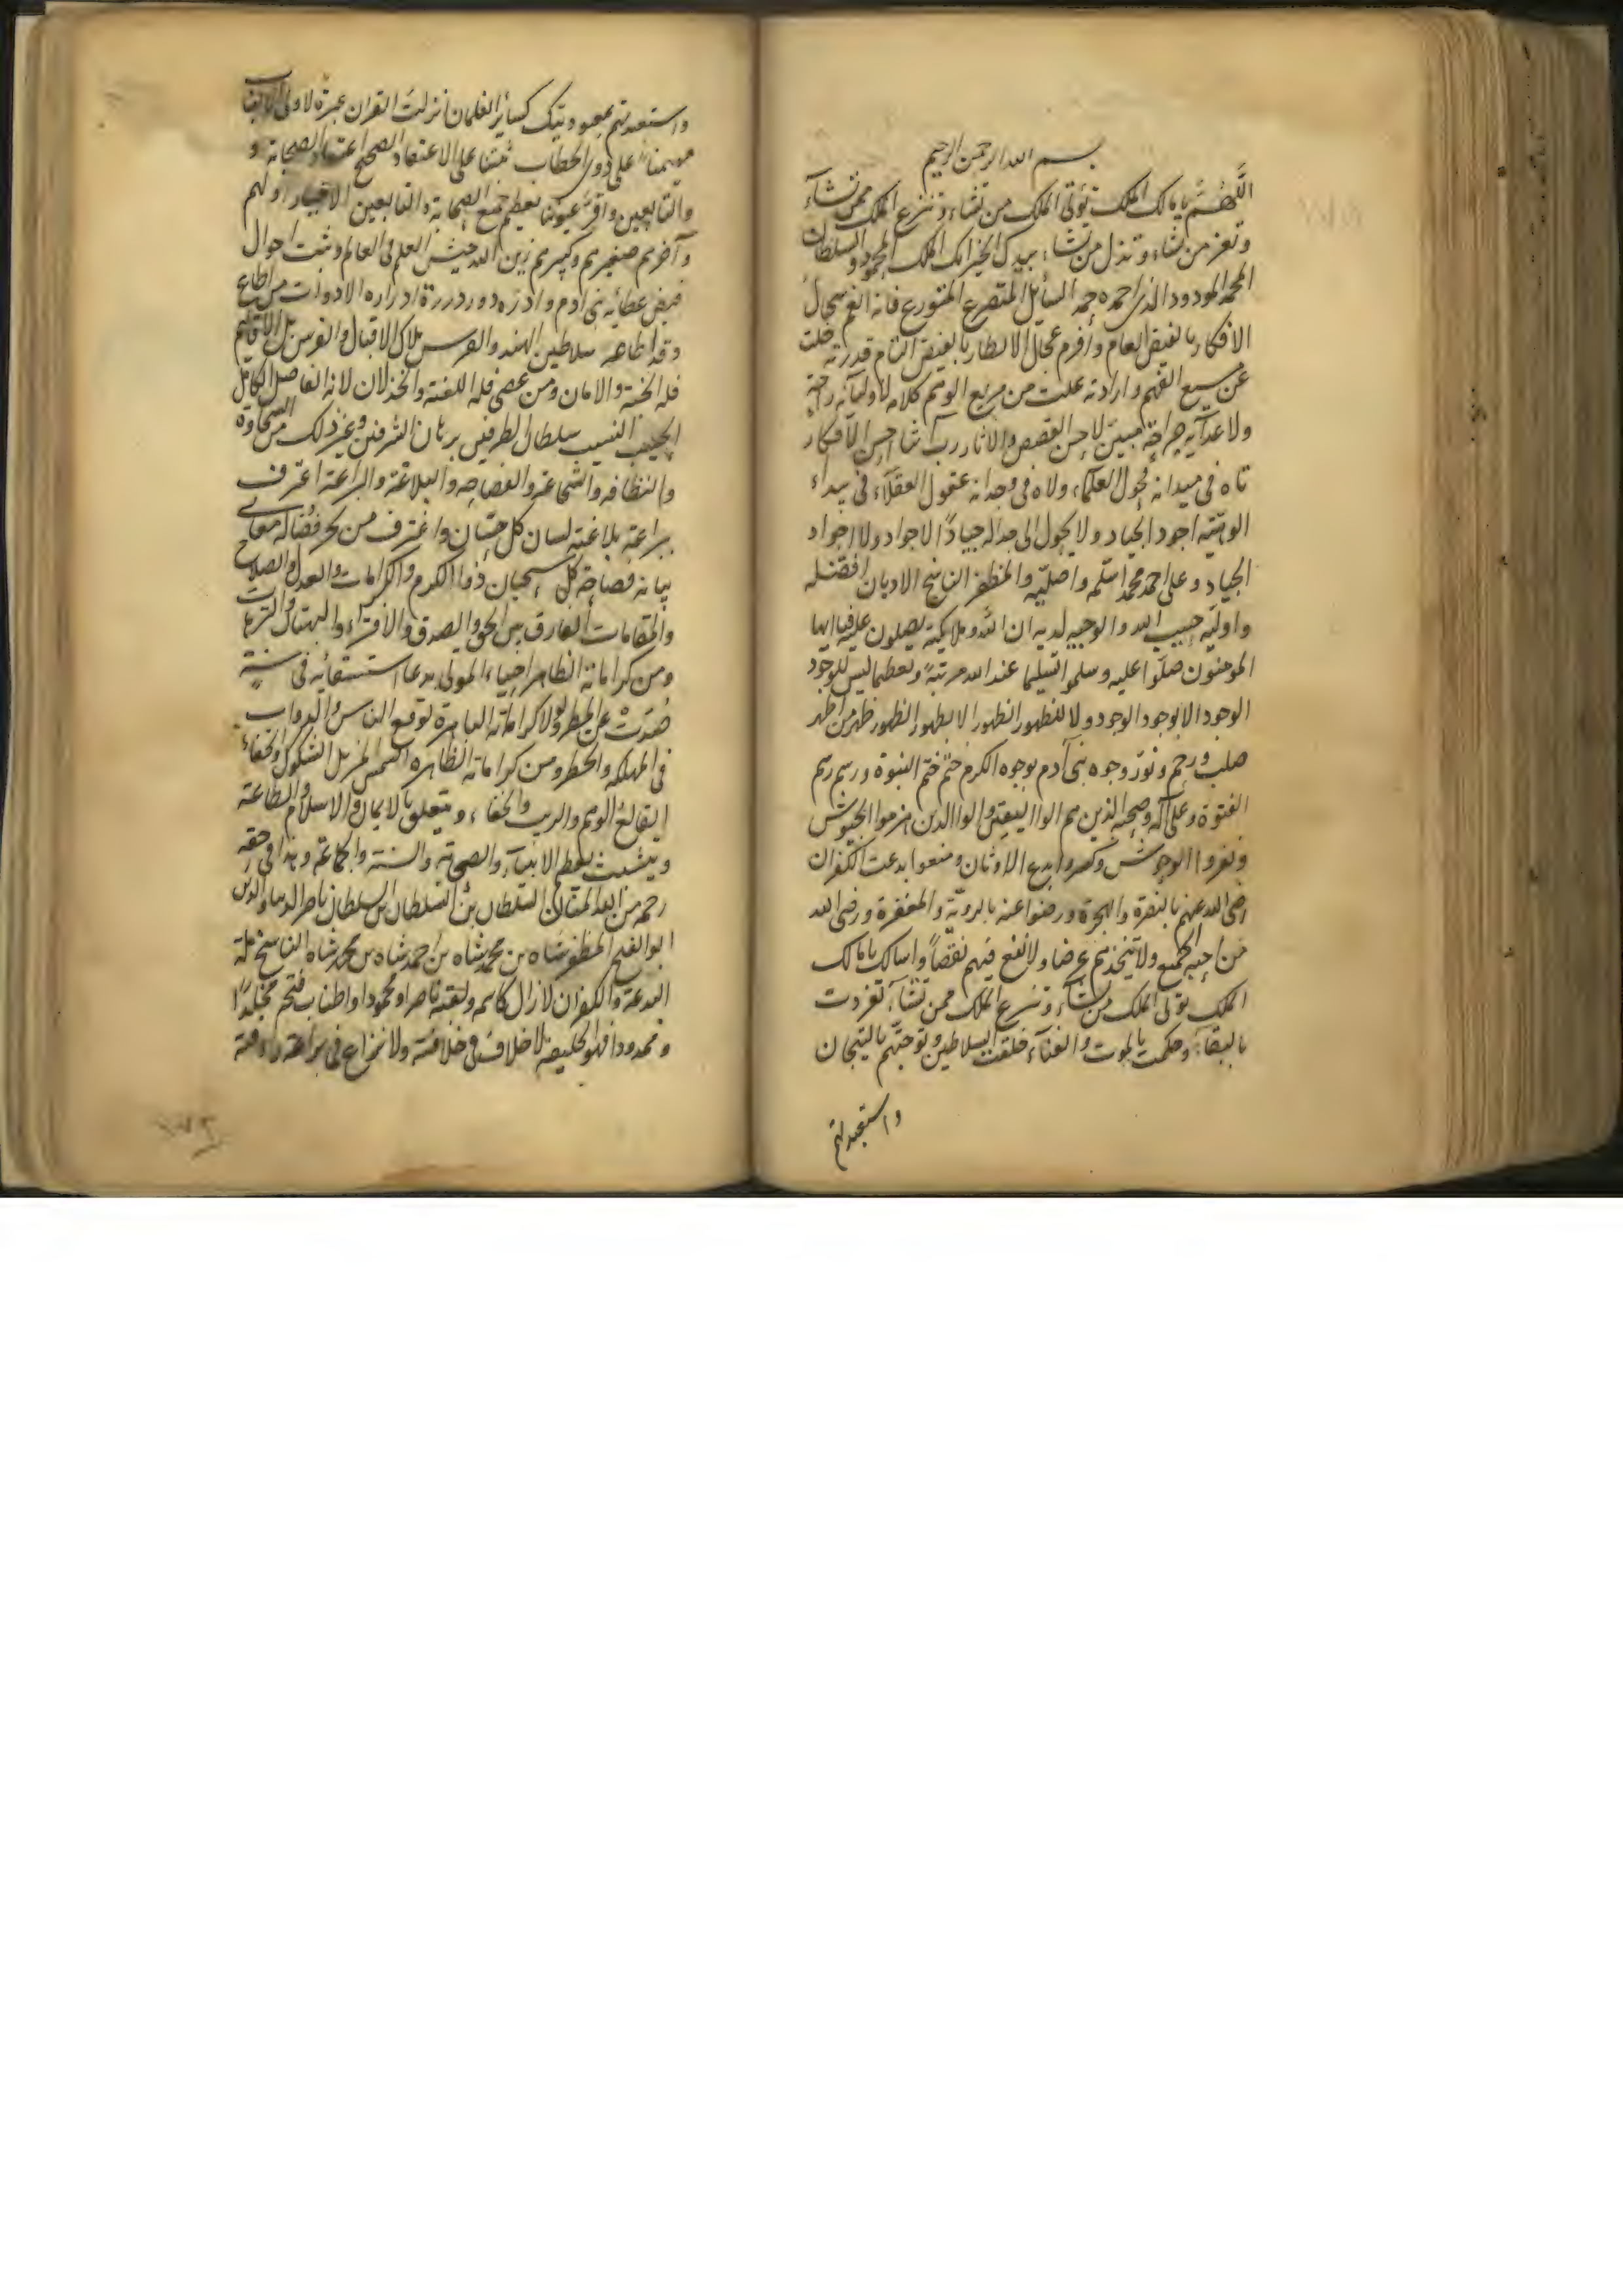 بسم الله الرحمن الرحيم
اللهم يا مالك الملك تؤتى الملك من تشاء وتنزع الملك ممن تشاء
وتعز من تشاء وتذل من تشاء بيدك الخير انك الملك المحمود والسلطان
المحمد المودود الذى احمده حمد السائل المتضرع المتورع فانه انعم سجال
الافكار بالفيض العام وأفرم عجال الانطار بالفيض التام قدرته خلت
عن سبع الفهم وارادته علت من مربع الوهم كلامه لاوليائه رحمة
ولاعدآئه جراحة مبين لاحسن القصص والاثار رب انشا احسن الافكار
تاه فى ميدانه فحول العلماء ولاه فى وجدانه عقول العقلآء فى بيداء
الوهيته اجود الجياد ولا يحول الى جداله جياد الاجواد ولا اجواد
الجياد وعلى احمد محمد اسلمه واصليه والمظفر الناسخ الاديان افضله
واوليه حبيب الله والوجيه لديه ان الله وملايكته يصلون عليه فيا ايها
المومنون صلوا عليه وسلموا تسليما عند الله مرتبة وتعظما ليس للوجود
الوجود الا بوجود الوجود ولا للظهور الظهور الا بظهور الظهور ظهر من اطهر
صلب ورحم ونور وجوه بنى آدم بوجوه الكرم ختم ختم النبوة ورسم رسم
الفتوة وعلى آله وصحبه الذين هم الوا اليقين والوا الدين هزموا الجيوش
ونفروا الوحوش وكسروا بدع الاوثان ومنعوا بدعت الكفران
رضى الله عنهم بالنصرة والهجرة ورضوا عنه بالروية والمغفرة ورضى الله
من احبه الجميع ولا يتخذهم غرضا ولا نفع فيهم نقصاً واسالك يا مالك
الملك تؤتى الملك من تشاء وتنزع الملك ممن تشآء تفردت
بالبقآء وحكمت بالموت والفنآء خلقت السلاطين وتوجتهم بالتيجان
واستعبدتهم
واستعبدتهم بعبوديتك كسائر الغلمان انزلت القران عبرة لاولى الالباب
مهيمنا على ذوى الخطاب ثبتنا على الاعتقاد الصحيح اعتقاد الصحابة و
والتابعين واقر عيوننا بعظيم جميع الصحابة والتابعين الاخيار اولهم
وآخرهم صغيرهم وكبيرهم زين الله جيش العلم فى العالم وثبت احوال
فيض عطائه بنى ادم وادر دور دررة ادراره الادوات من اطاع
وقد اطاعه سلاطين الهند والفرس ملاك الاقبال والفرس بل الاقاليم
فله الجنة والامان ومن عصى فله اللعنة والخذلان لانه الفاضل الكامل
الحبيب النسيب سلطان الطرفين برهان الشرفين وغير ذلك من السخاوة
والنظافه والشجاعة والفصاحه والبلاغة والبراعة اعترف
ببراعة بلاغته لسان كل حسان واغترف من بحر فضاله معانى
بيانه فصاحة كل سحبان ذو الكرم والكرامات والعدل والصلاح
والمقامات الفارق بين الحق والصدق والافتراء والبهتان والترهات
ومن كراماته الظاهر احياء المولى بدعا استسقائيه فى سنة
صُدّت عن المطر لولا كراماته العامرة لوقع الناس والدواب
فى المهلكة والخطر ومن كراماته الظاهره الشمس المزيل الشكوك والخفاء
القالع الوهم والريب والخفاء ويتعلق بالايمان والاسلام والطاعة
ويتشبث بعظم الانبيآء والصحابة والسنة والجماعة وهذا فى حقه
رحمة من الله المتعال السلطان بن السلطان بن السلطان ناصر الدنيا والدين
ابو الفتح المظفر شاه بن محمد شاه بن احمد شاه بن محمد شاه الناسخ ملة
البدعة والكفران لازال كاسمه ولقبه ناصرا ومحمودا واطناب فتحه مخلدًا
وممدودا فهو الخليفة لا خلاف فى خلافته ولا نزاع فى براعته ورافته